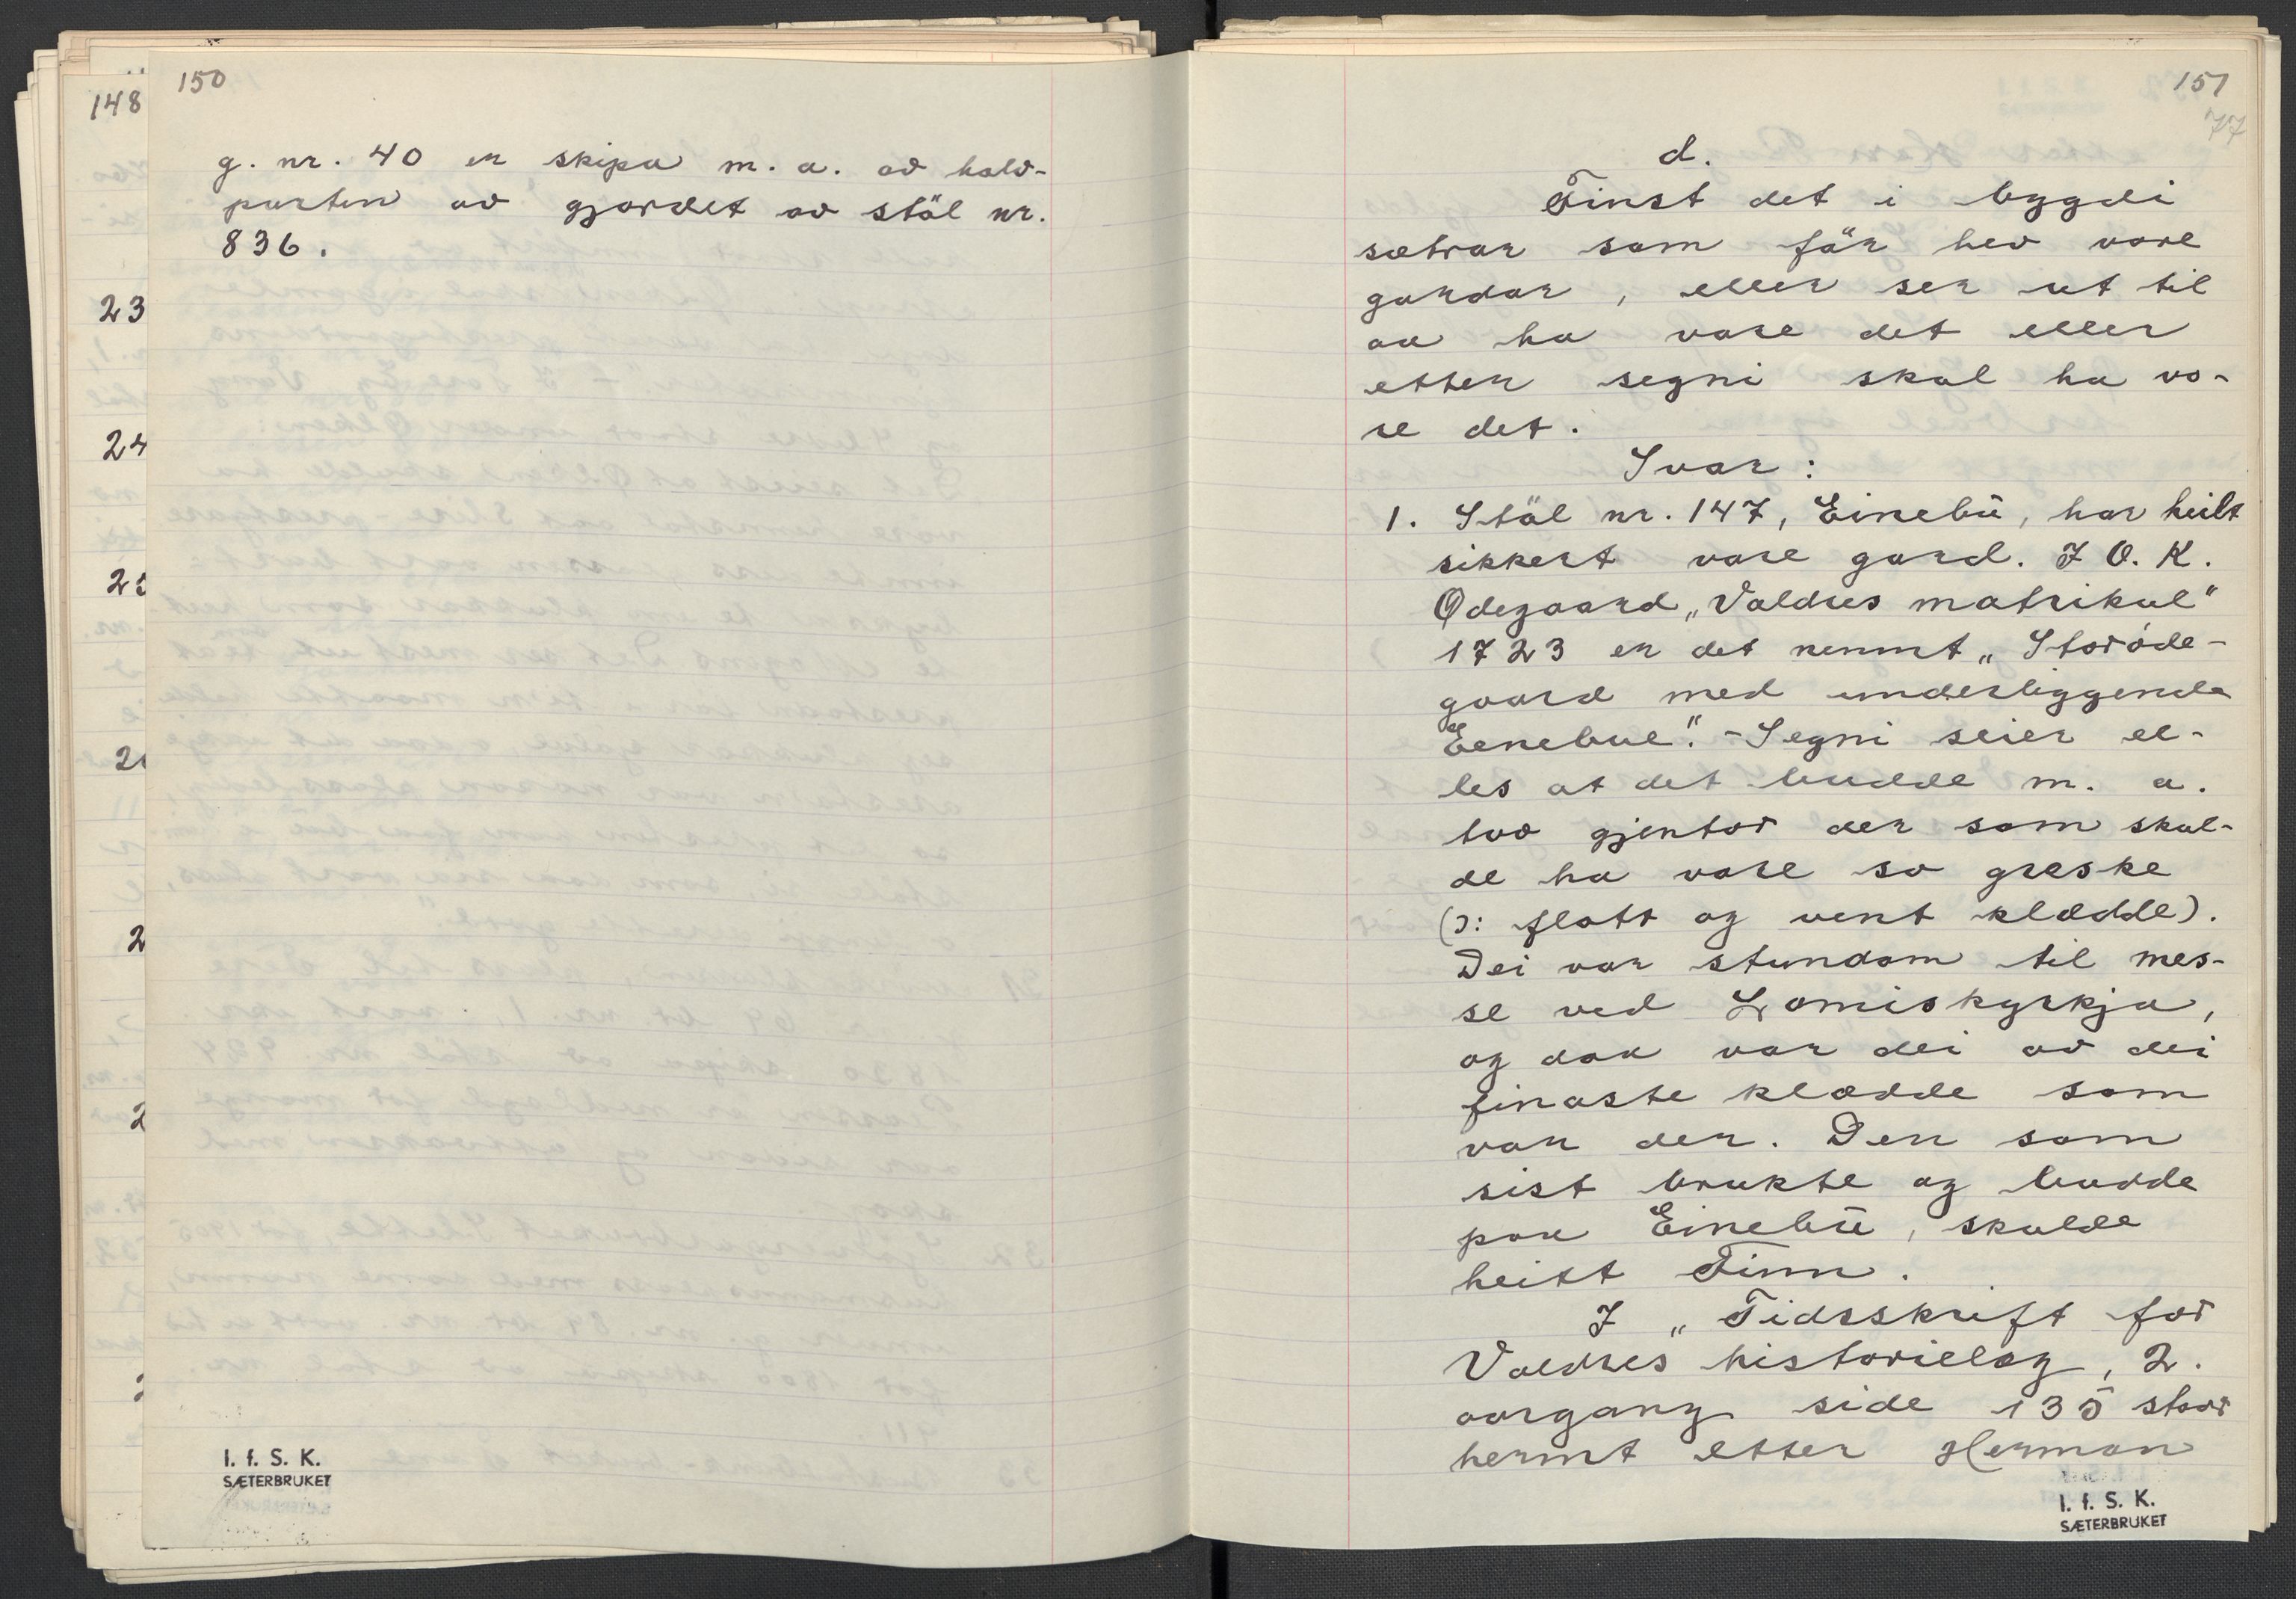 150
148
g. nr. 40 er skipa m. a. av halv-
parten av gjordet av stäl nr.
836.
23
24
2
2
2
2
I. f. S. K.
SÆTERBRUKET
151
77
d.
Finst det i bygdi
sætrar som fär hev vore
gardar, eller ser ut til
aa ha vore det eller
etter segni skal ha vo-
re det.
Svar:
1. Stäl nr. 147, Einebü, har heilt
sikkert vore gard. I O. K.
Ødegaard „Valdres matrikul"
1723 er det nemnt „Storøde-
gaard med underliggende
Eenebue". - Segni seier el-
les at det budde m. a.
tvo gjentor der som skul-
de ha vore so greske
(ɔ: flott og vent klædde).
Dei var stundom til mes-
se ved Lomiskyrkja,
og daa var dei av dei
finaste klædde som
var der. Den som
sist brukte og budde
paa Einebü, skulde
heitt Finn.
I „Tidsskrift for
Valdres historielag, 2.
aargang side 135 staar
hermt etter Herman
I. f. S. K.
SÆTERBRUKET